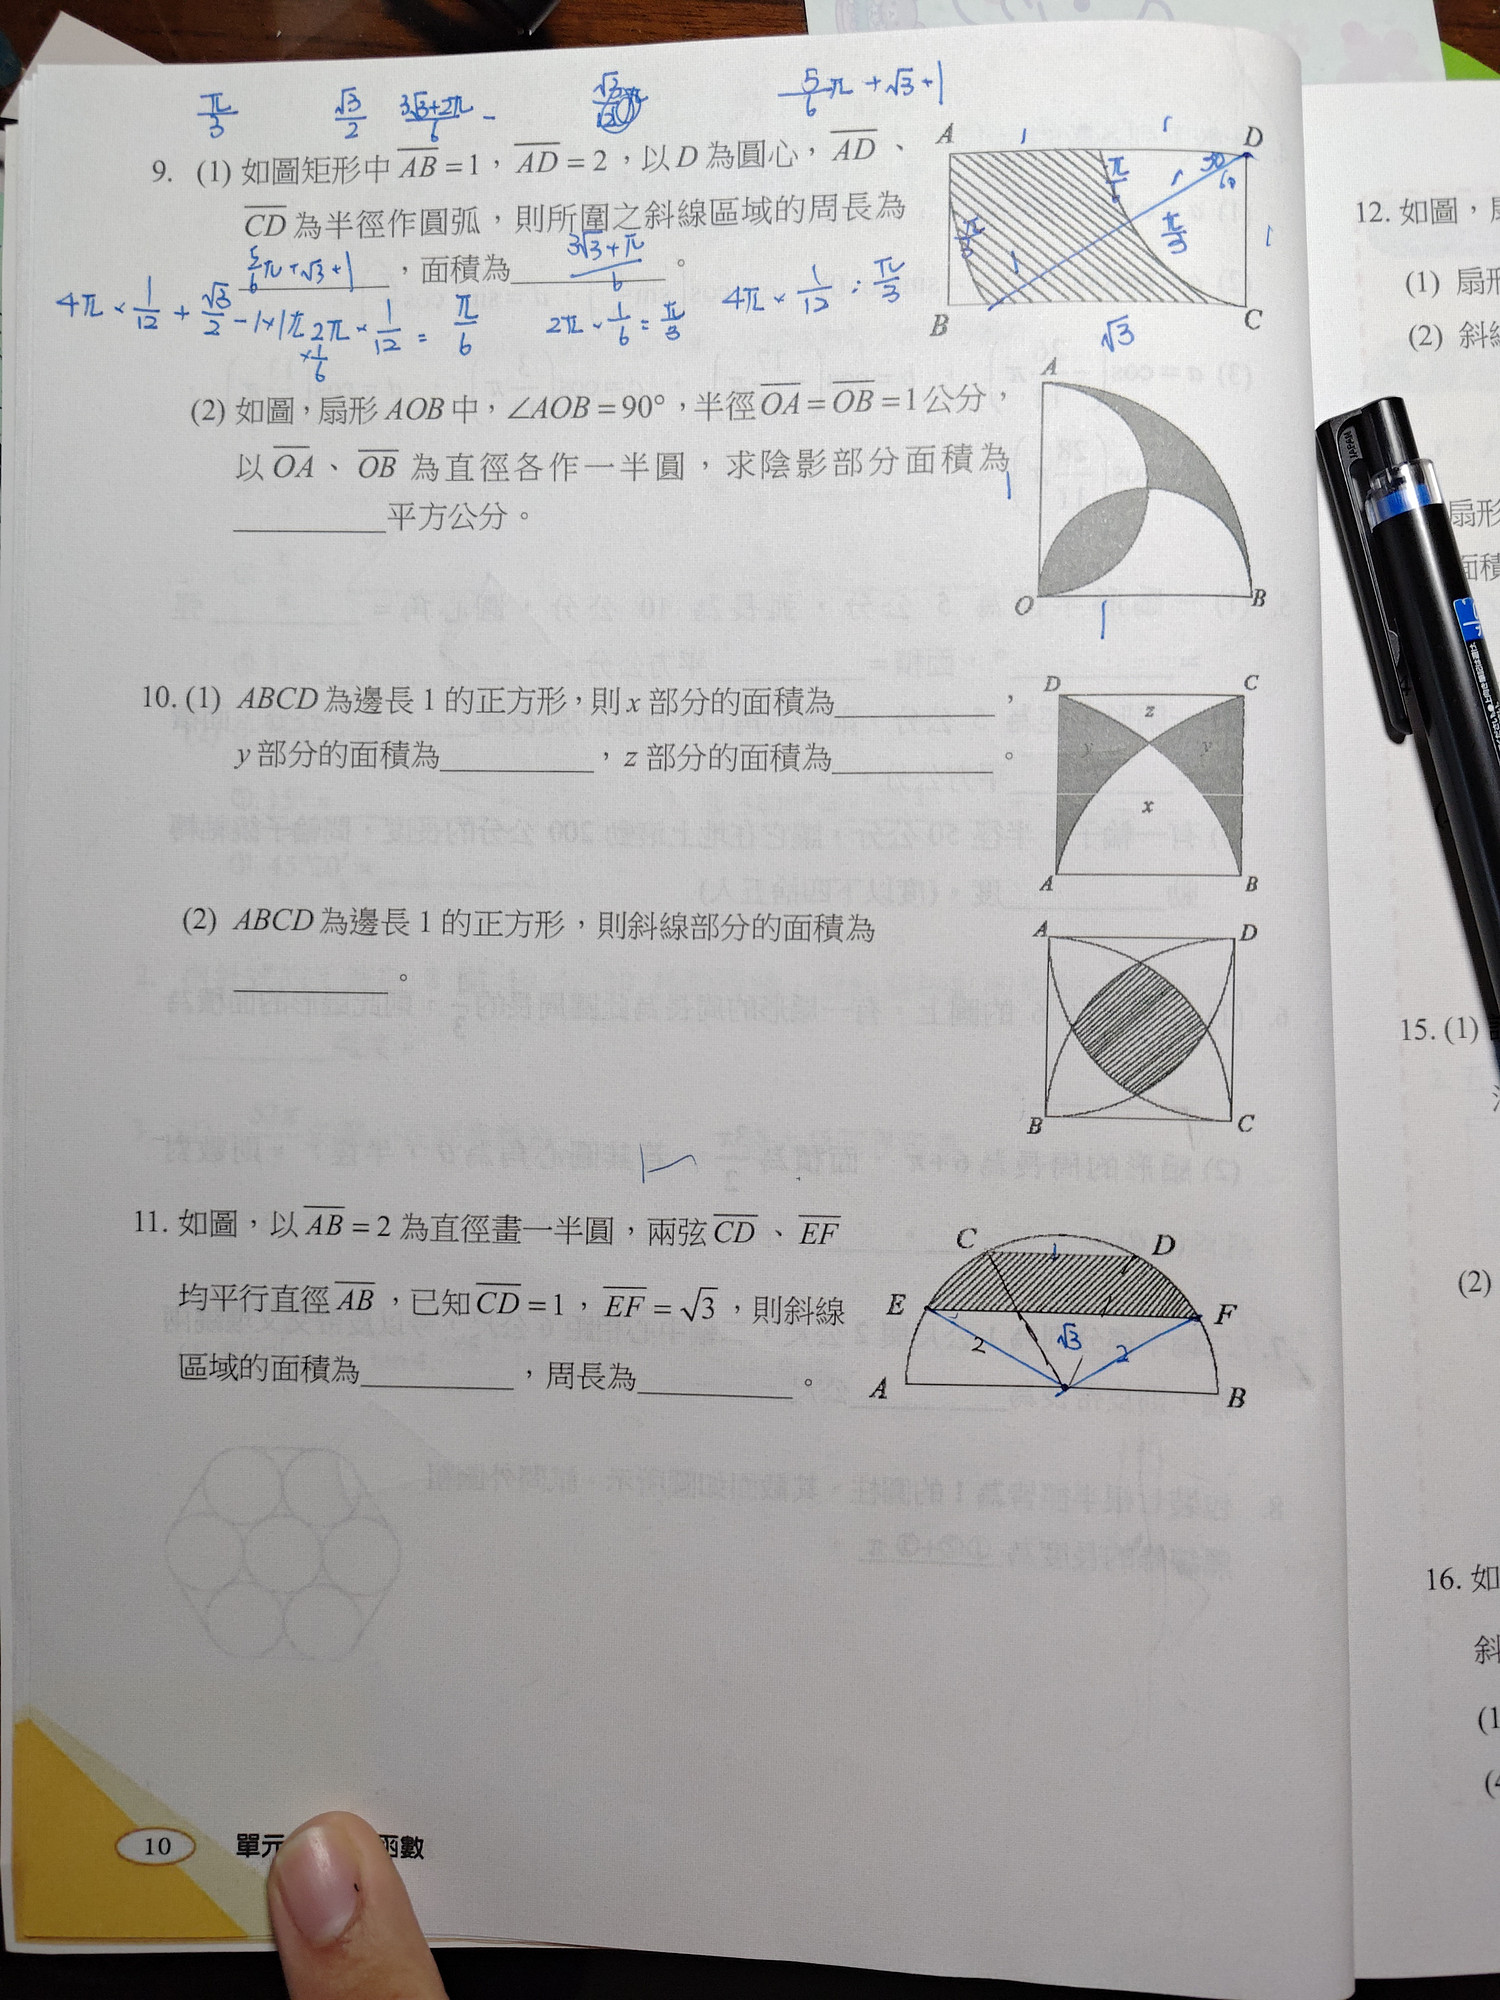 π/3 √3/2 (3√3+2π)/6 -
5/6 π + √3 + 1
9. (1) 如圖矩形中 AB = 1，AD = 2，以 D 為圓心，AD、
CD 為半徑作圓弧，則所圍之斜線區域的周長為
5/6 π + √3 + 1，面積為 (3√3+π)/6。
4π × 1/12 + √3/2 - 1×1π × 1/6
2π × 1/12 = π/6
2π × 1/6 = π/3
4π × 1/12 = π/3
A 1 1 D
π/6 1 30 60
π/3 1 π/3 1
B √3 C
(2) 如圖，扇形 AOB 中，∠AOB = 90°，半徑 OA = OB = 1 公分，
以 OA、OB 為直徑各作一半圓，求陰影部分面積為
平方公分。
A
1
O B
1
10. (1) ABCD 為邊長 1 的正方形，則 x 部分的面積為，
y 部分的面積為，z 部分的面積為。
D C
z
y y
x
A B
(2) ABCD 為邊長 1 的正方形，則斜線部分的面積為
。
A D
B C
11. 如圖，以 AB = 2 為直徑畫一半圓，兩弦 CD、EF
均平行直徑 AB，已知 CD = 1，EF = √3，則斜線
區域的面積為，周長為。
C 1 D
E F
2 √3 2
A B
10 單元 函數
12. 如圖，
(1) 扇形
(2) 斜
扇形
面積
JAPAN
15. (1)
(2)
16. 如
斜
(1
(4